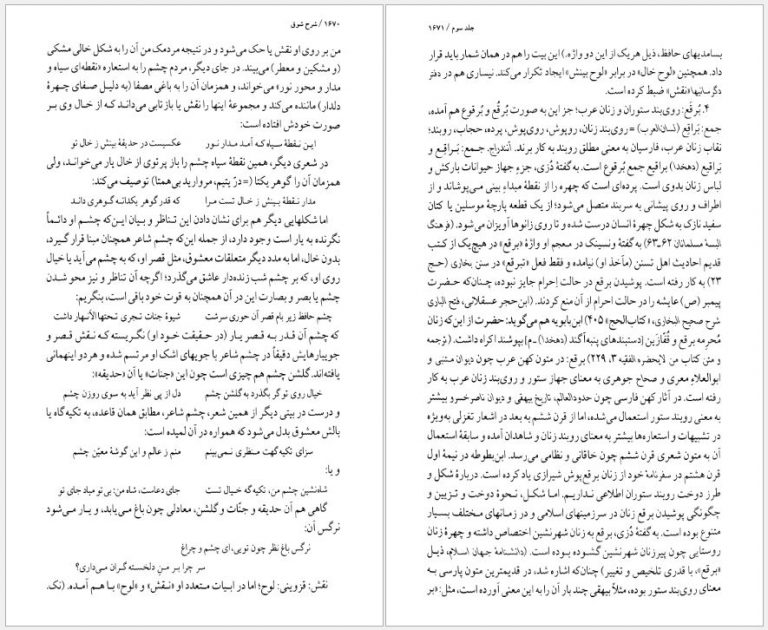 ۱۶۷۰ / شرح شوق
من بر روی او نقش یا حک می‌شود و در نتیجه مردمک من آن را به شکل خالی مشکی
(و مشکین و معطر) می‌بیند. در جای دیگر، مردم چشم را به استعاره «نقطه‌ای سیاه و
مدار و محور نور» می‌خواند، و همزمان آن را به باغی مصفا (به دلیل صفای چهرهٔ
دلدار) ماننده می‌کند و مجموعهٔ اینها را نقش یا بازتابی می‌داند که از خال وی بر
صورت خودش افتاده است:
این نقطهٔ سیاه که آمد مدار نور عکسیست در حدیقهٔ بینش ز خال تو
در شعری دیگر، همین نقطهٔ سیاه چشم را باز پرتوی از خال یار می‌خواند، ولی
همزمان آن را گوهر یکتا (= درّ یتیم، مروارید بی‌همتا) توصیف می‌کند:
مدار نقطهٔ بینش ز خال تست مرا که قدر گوهر یکدانه گوهری داند
اما شکلهایی دیگر هم برای نشان دادن این تناظر و بیان این‌که چشم او دائماً
نگرنده به یار است وجود دارد، از جمله این‌که چشم شاعر همچنان مبنا قرار گیرد،
بدون خال، اما به مدد دیگر متعلقات معشوق، مثل قصر او، که به چشم می‌آید یا خیال
روی او، که بر چشم شب زنده‌دار عاشق می‌گذرد؛ اگرچه آن تناظر و نیز محو شدن
چشم یا بصر و بصارت این در آن همچنان به قوت خود باقی است، بنگریم:
چشم حافظ زیر بام قصر آن حوری سرشت شیوهٔ جنات تجری تحتها الأنهار داشت
که چشم آن قدر به قصر یار (در حقیقت خود او) نگریسته که نقش قصر و
جویبارهایش دقیقاً در چشم شاعر با جویهای اشک او مرتسم شده و هر دو اینهمانی
یافته‌اند. گلشن چشم هم چیزی است چون این «جنات» یا آن «حدیقه»:
خیال روی تو گر بگذرد به گلشن چشم دل از پی نظر آید به سوی روزن چشم
و درست در بیتی دیگر از همین شعر، چشم شاعر، مطابق همان قاعده، به تکیه‌گاه یا
بالش معشوق بدل می‌شود که همواره در آن لمیده است:
سزای تکیه‌گهت منظری نمی‌بینم منم ز عالم و این گوشهٔ معیّن چشم
و یا:
شاه‌نشین چشم من، تکیه‌گه خیال تست جای دعاست، شاه من؛ بی تو مباد جای تو
گاهی هم آن حدیقه و جنّات و گلشن، معادلی چون باغ می‌یابد، و یار می‌شود
نرگس آن:
نرگس باغ نظر چون تویی، ای چشم و چراغ
سر چرا بر من دلخسته گران می‌داری؟
نقش: قزوینی: لوح؛ اما در ابیات متعدد او «نقش» و «لوح» با هم آمده. (نک.
جلد سوم / ۱۶۷۱
بسامدیهای حافظ، ذیل هریک از این دو واژه.) این بیت را هم در همان شمار باید قرار
داد. همچنین «لوح خال» در برابر «لوح بینش» ایجاد تکرار می‌کند. نیساری هم در دفتر
دگرسانیها «نقش» ضبط کرده است.
۴. بُرقَع: روی‌بند ستوران و زنان عرب؛ جز این به صورت بُرقُع و بُرقوع هم آمده،
جمع: بَراقِع (لسان‌العرب) = روی‌بند زنان، روپوش، روی‌پوش، پرده، حجاب، روبند؛
نقاب زنان عرب، فارسیان به معنی مطلق روبند به کار برند. آنندراج. جمع: بَراقِع و
بَراقیع (دهخدا) براقیع جمع بُرقوع است. به گفتهٔ دُزی، جزءِ جهاز حیوانات بارکش و
لباس زنان بدوی است. پرده‌ای است که چهره را از نقطهٔ مبداءِ بینی می‌پوشاند و از
اطراف و روی پیشانی به سربند متصل می‌شود؛ از یک قطعه پارچهٔ موسلین یا کتان
سفید نازک به شکل چهرهٔ انسان درست شده و تا روی زانوها آویزان می‌شود. (فرهنگ
البسهٔ مسلمانان ۶۲–۶۳) به گفتهٔ ونسینک در معجم او واژهٔ «برقع» در هیچ‌یک از کتب
قدیم احادیث اهل تسنن (مآخذ او) نیامده و فقط فعل «تبرقع» در سنن بخاری (حج
۲۳) به کار رفته است. پوشیدن برقع در حالت اِحرام جایز نبوده، چنان‌که حضرت
پیمبر (ص) عایشه را در حالت احرام از آن منع کردند. (ابن‌حجر عسقلانی، فتح الباری
شرح صحیح البخاری، «کتاب‌الحج» ۴۰۵) ابن‌بابویه هم می‌گوید: حضرت از این‌که زنان
مُحرمه برقع و قُفّازَین (دستبندهای پنبه‌آگند (دهخدا) ـ م) بپوشند اکراه داشت. (ترجمه
و متن کتاب من لایحضره الفقیه ۳، ۲۲۹) برقع: در متون کهن عرب چون دیوان متنبی و
ابوالعلاءِ معری و صحاح جوهری به معنای جهاز ستور و روی‌بند زنان عرب به کار
رفته است. در آثار کهن فارسی چون حدودالعالم، تاریخ بیهقی و دیوان ناصرخسرو بیشتر
به معنی روبند ستور استعمال می‌شده، اما از قرن ششم به بعد در اشعار تغزلی به‌ویژه
در تشبیهات و استعاره‌ها بیشتر به معنای روبند زنان و شاهدان آمده و سابقهٔ استعمال
آن به متون شعری قرن ششم چون خاقانی و نظامی می‌رسد. ابن‌بطوطه در نیمهٔ اول
قرن هشتم در سفرنامهٔ خود از زنان برقع‌پوش شیرازی یاد کرده است. دربارهٔ شکل و
طرز دوخت روبند ستوران اطلاعی نداریم. اما شکل، نحوهٔ دوخت و تزیین و
چگونگی پوشیدن برقع زنان در سرزمینهای اسلامی و در زمانهای مختلف بسیار
متنوع بوده است. به گفتهٔ دُزی، برقع به زنان شهرنشین اختصاص داشته و چهرهٔ زنان
روستایی چون پیرزنان شهرنشین گشوده بوده است. (دانشنامهٔ جهان اسلام، ذیل
«برقع»، با قدری تلخیص و تغییر) چنان‌که اشاره شد، در قدیمترین متون پارسی به
معنای روی‌بند ستور بوده، مثلاً بیهقی چند بار آن را به این معنی آورده است، مثل: «بر